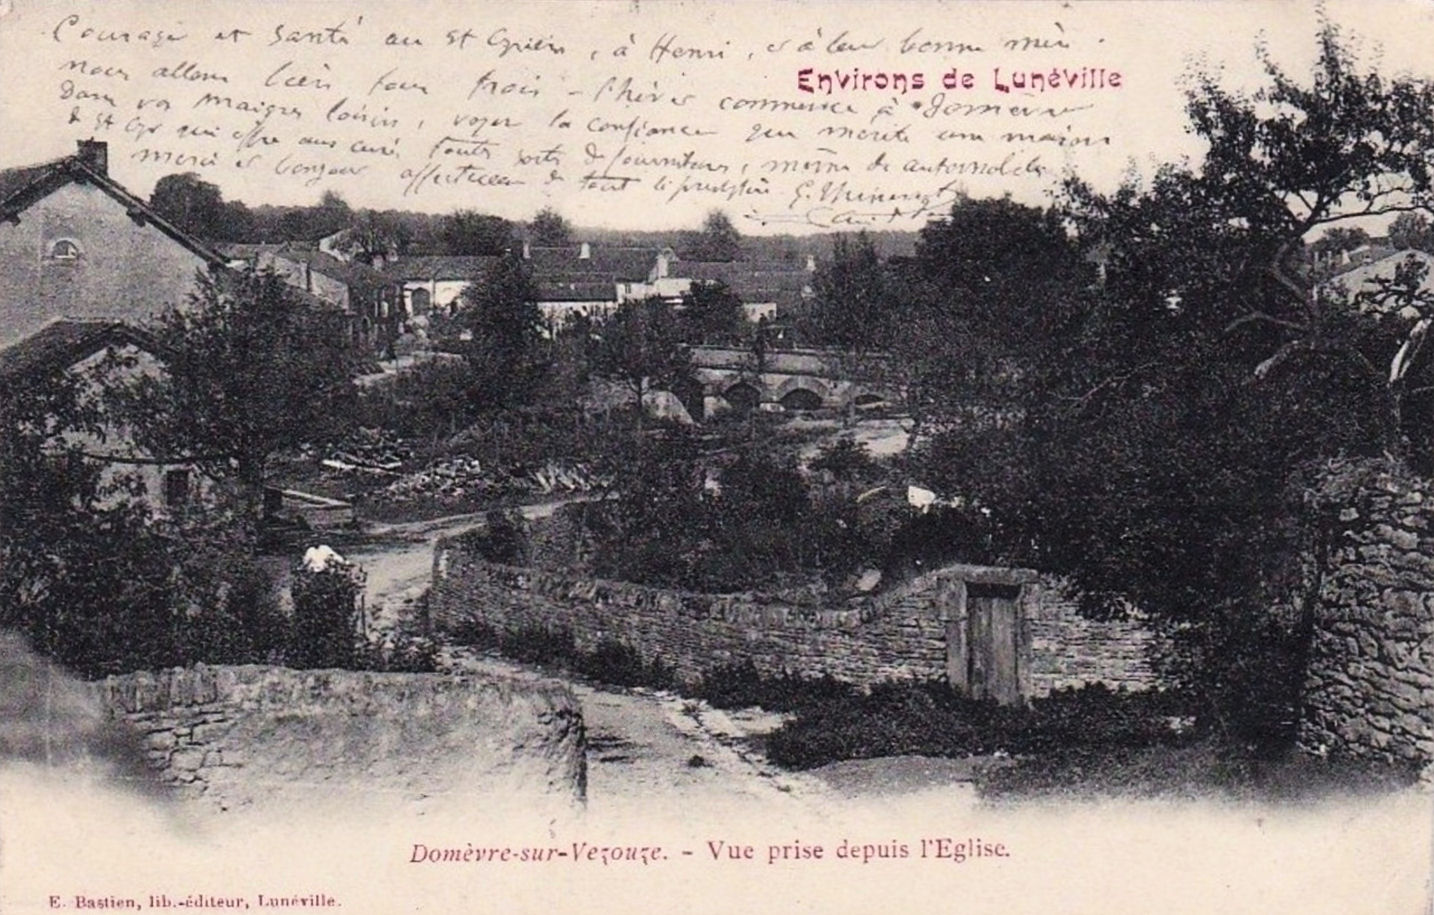 Courage et santé au St Cyrien, à Henri, et à leur bonne mère.
nous allons bien tous trois - l'hiver commence à Domèvre
Environs de Lunéville
Dans vos maigres loisirs, voyez la confiance que mérite une maison
de St Cyr qui offre aux curés toutes sortes de fournitures, même de automobiles
merci et bonjour affectueux de tout le presbytère
Domèvre-sur-Vezouze. - Vue prise depuis l'Eglise.
E. Bastien, lib.-éditeur, Lunéville.